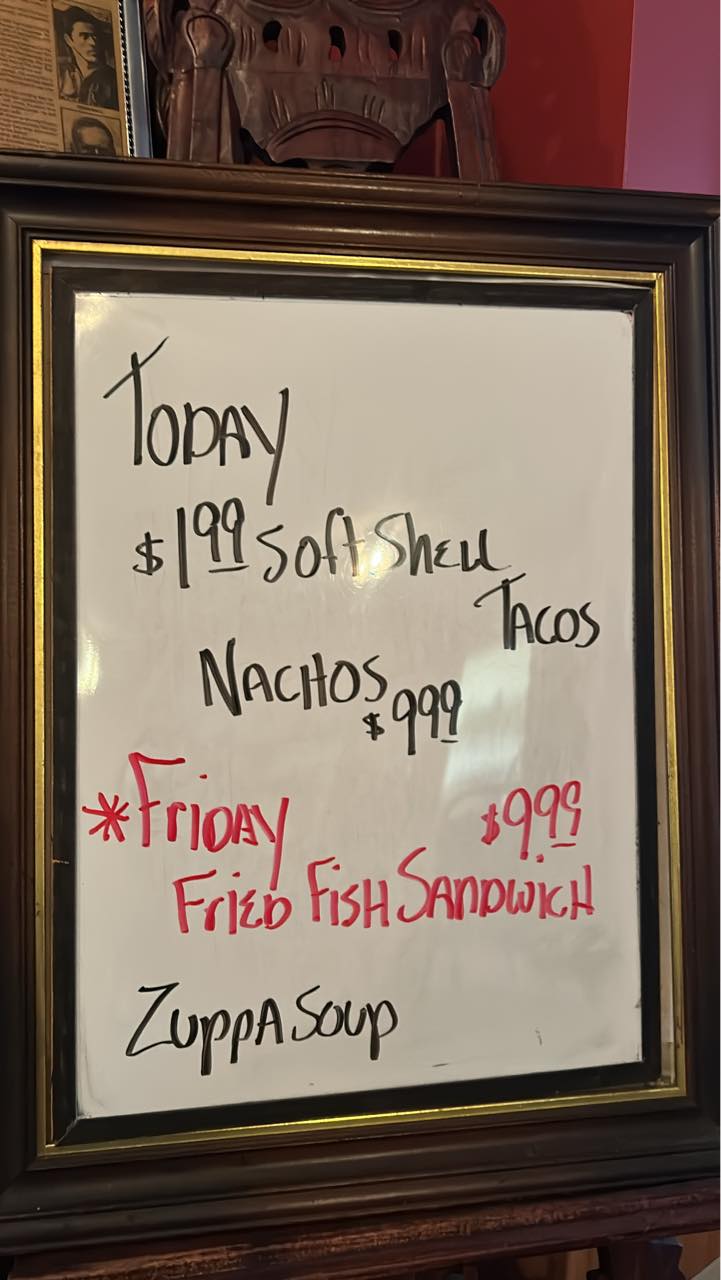 Today
$1.99 Soft Shell
Tacos
Nachos
$9.99
*Friday $9.99
Fried Fish Sandwich
Zuppa Soup